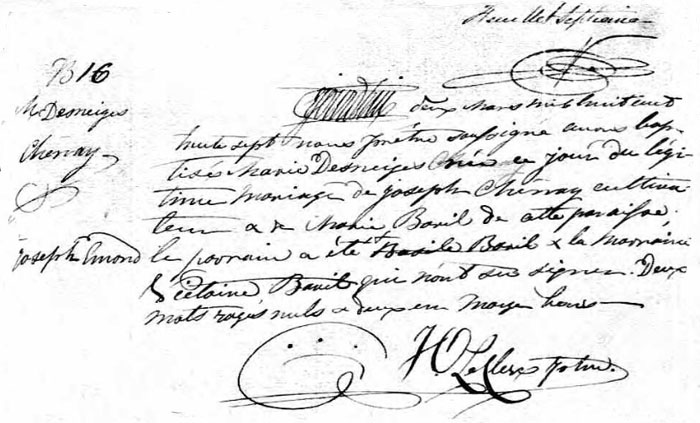 Feuillet septième
B16
M Desneiges
Chenay
deux mars mil huit cent
trente sept nous prêtre soussigné avons bap-
tisé Marie Desneiges née ce jour du légi-
time mariage de Joseph Chenay cultiva-
teur & de Marie Baril de cette paroisse.
Joseph Emond
le parrain a été Basile Baril & la marraine
Baril qui n'ont su signer. Deux
mots rayés nuls & deux en marge bons
Leclerc ptre.